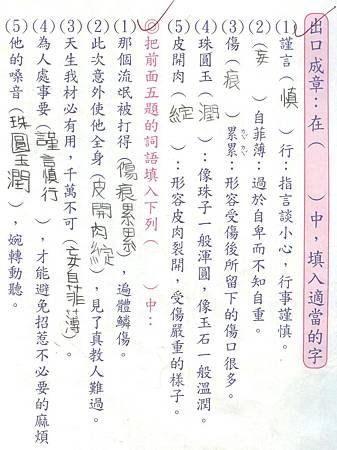 出口成章：在（ ）中，填入適當的字
(1)謹言（慎）行：指言談小心，行事謹慎。
(2)（妄）自菲薄：過於自卑而不知自重。
(3)傷（痕）累ㄌㄟˇ累ㄌㄟˇ：形容受傷後所留下的傷口很多。
(4)珠圓玉（潤）：像珠子一般渾圓，像玉石一般溫潤。
(5)皮開肉（綻）：形容皮肉裂開，受傷嚴重的樣子。
◎把前面五題的詞語填入下列（ ）中：
(1)那個流氓被打得（傷痕累累），遍體鱗傷。
(2)此次意外使他全身（皮開肉綻），見了真教人難過。
(3)天生我材必有用，千萬不可（妄自菲薄）。
(4)為人處事要（謹言慎行），才能避免招惹不必要的麻煩
(5)他的嗓音（珠圓玉潤），婉轉動聽。